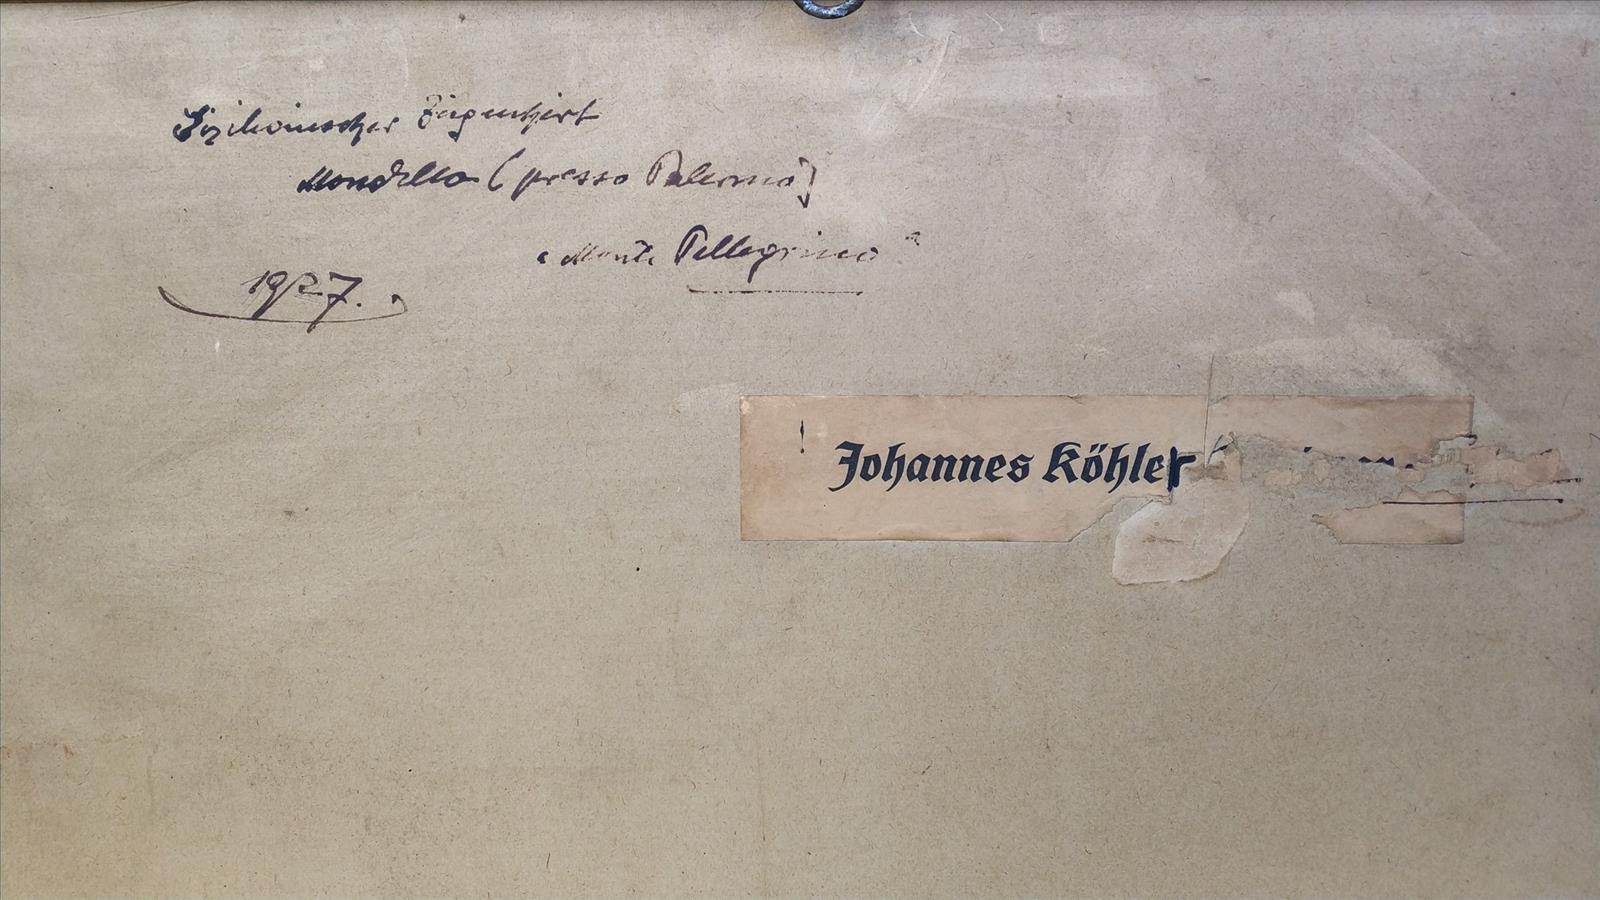 Sizilianischer Ziegenhirt
Mondello (presso Palermo)
"Monte Pellegrino"
1927.
Johannes Köhler